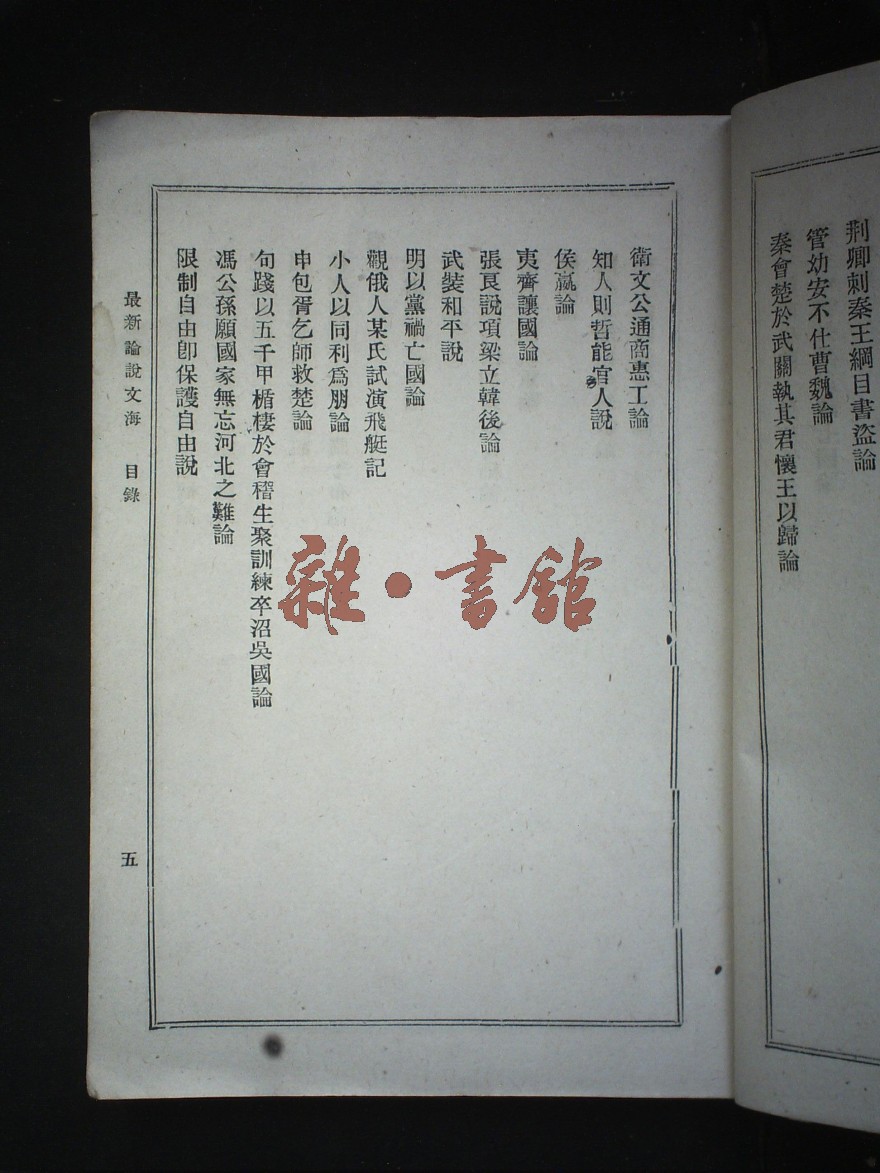 荆卿刺秦王綱目書盜論
管幼安不仕曹魏論
秦會楚於武關執其君懷王以歸論
衛文公通商惠工論
知人則哲能官人說
侯嬴論
夷齊讓國論
張良說項梁立韓後論
武裝和平說
明以黨禍亡國論
觀俄人某氏試演飛艇記
小人以同利爲朋論
申包胥乞師救楚論
句踐以五千甲楯棲於會稽生聚訓練卒沼吳國論
馮公孫願國家無忘河北之難論
限制自由卽保護自由說
最新論說文海 目錄
五
雜·書館